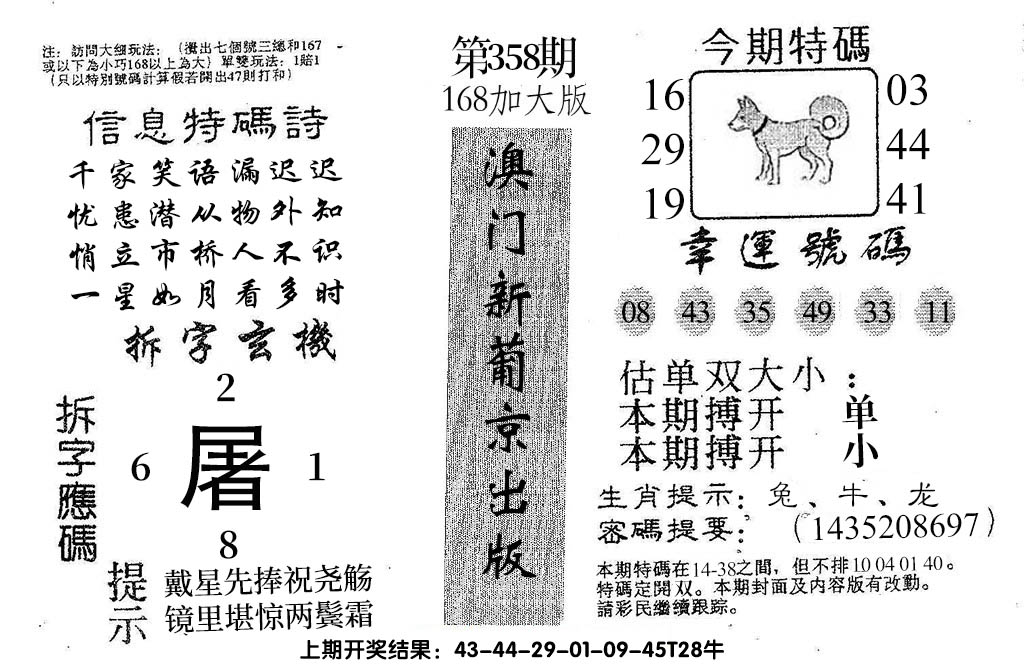 注：訪問大细玩法：（攪出七個號三總和167
或以下為小巧168以上為大）單雙玩法：1賠1
（只以特別號碼計算假若開出47則打和）
信息特碼詩
千家笑语漏迟迟
忧患潜从物外知
悄立市桥人不识
一星如月看多时
拆字玄機
拆字應碼
2
6 屠 1
8
提示
戴星先捧祝尧觞
镜里堪惊两鬓霜
第358期
168加大版
澳门新葡京出版
今期特碼
16 03
29 44
19 41
幸運號碼
08 43 35 49 33 11
估单双大小：
本期搏开 单
本期搏开 小
生肖提示：兔、牛、龙
密碼提要：（1435208697）
本期特碼在14-38之間，但不排10 04 01 40。
特碼定開双。本期封面及内容版有改動。
請彩民繼續跟踪。
上期开奖结果：43-44-29-01-09-45T28牛